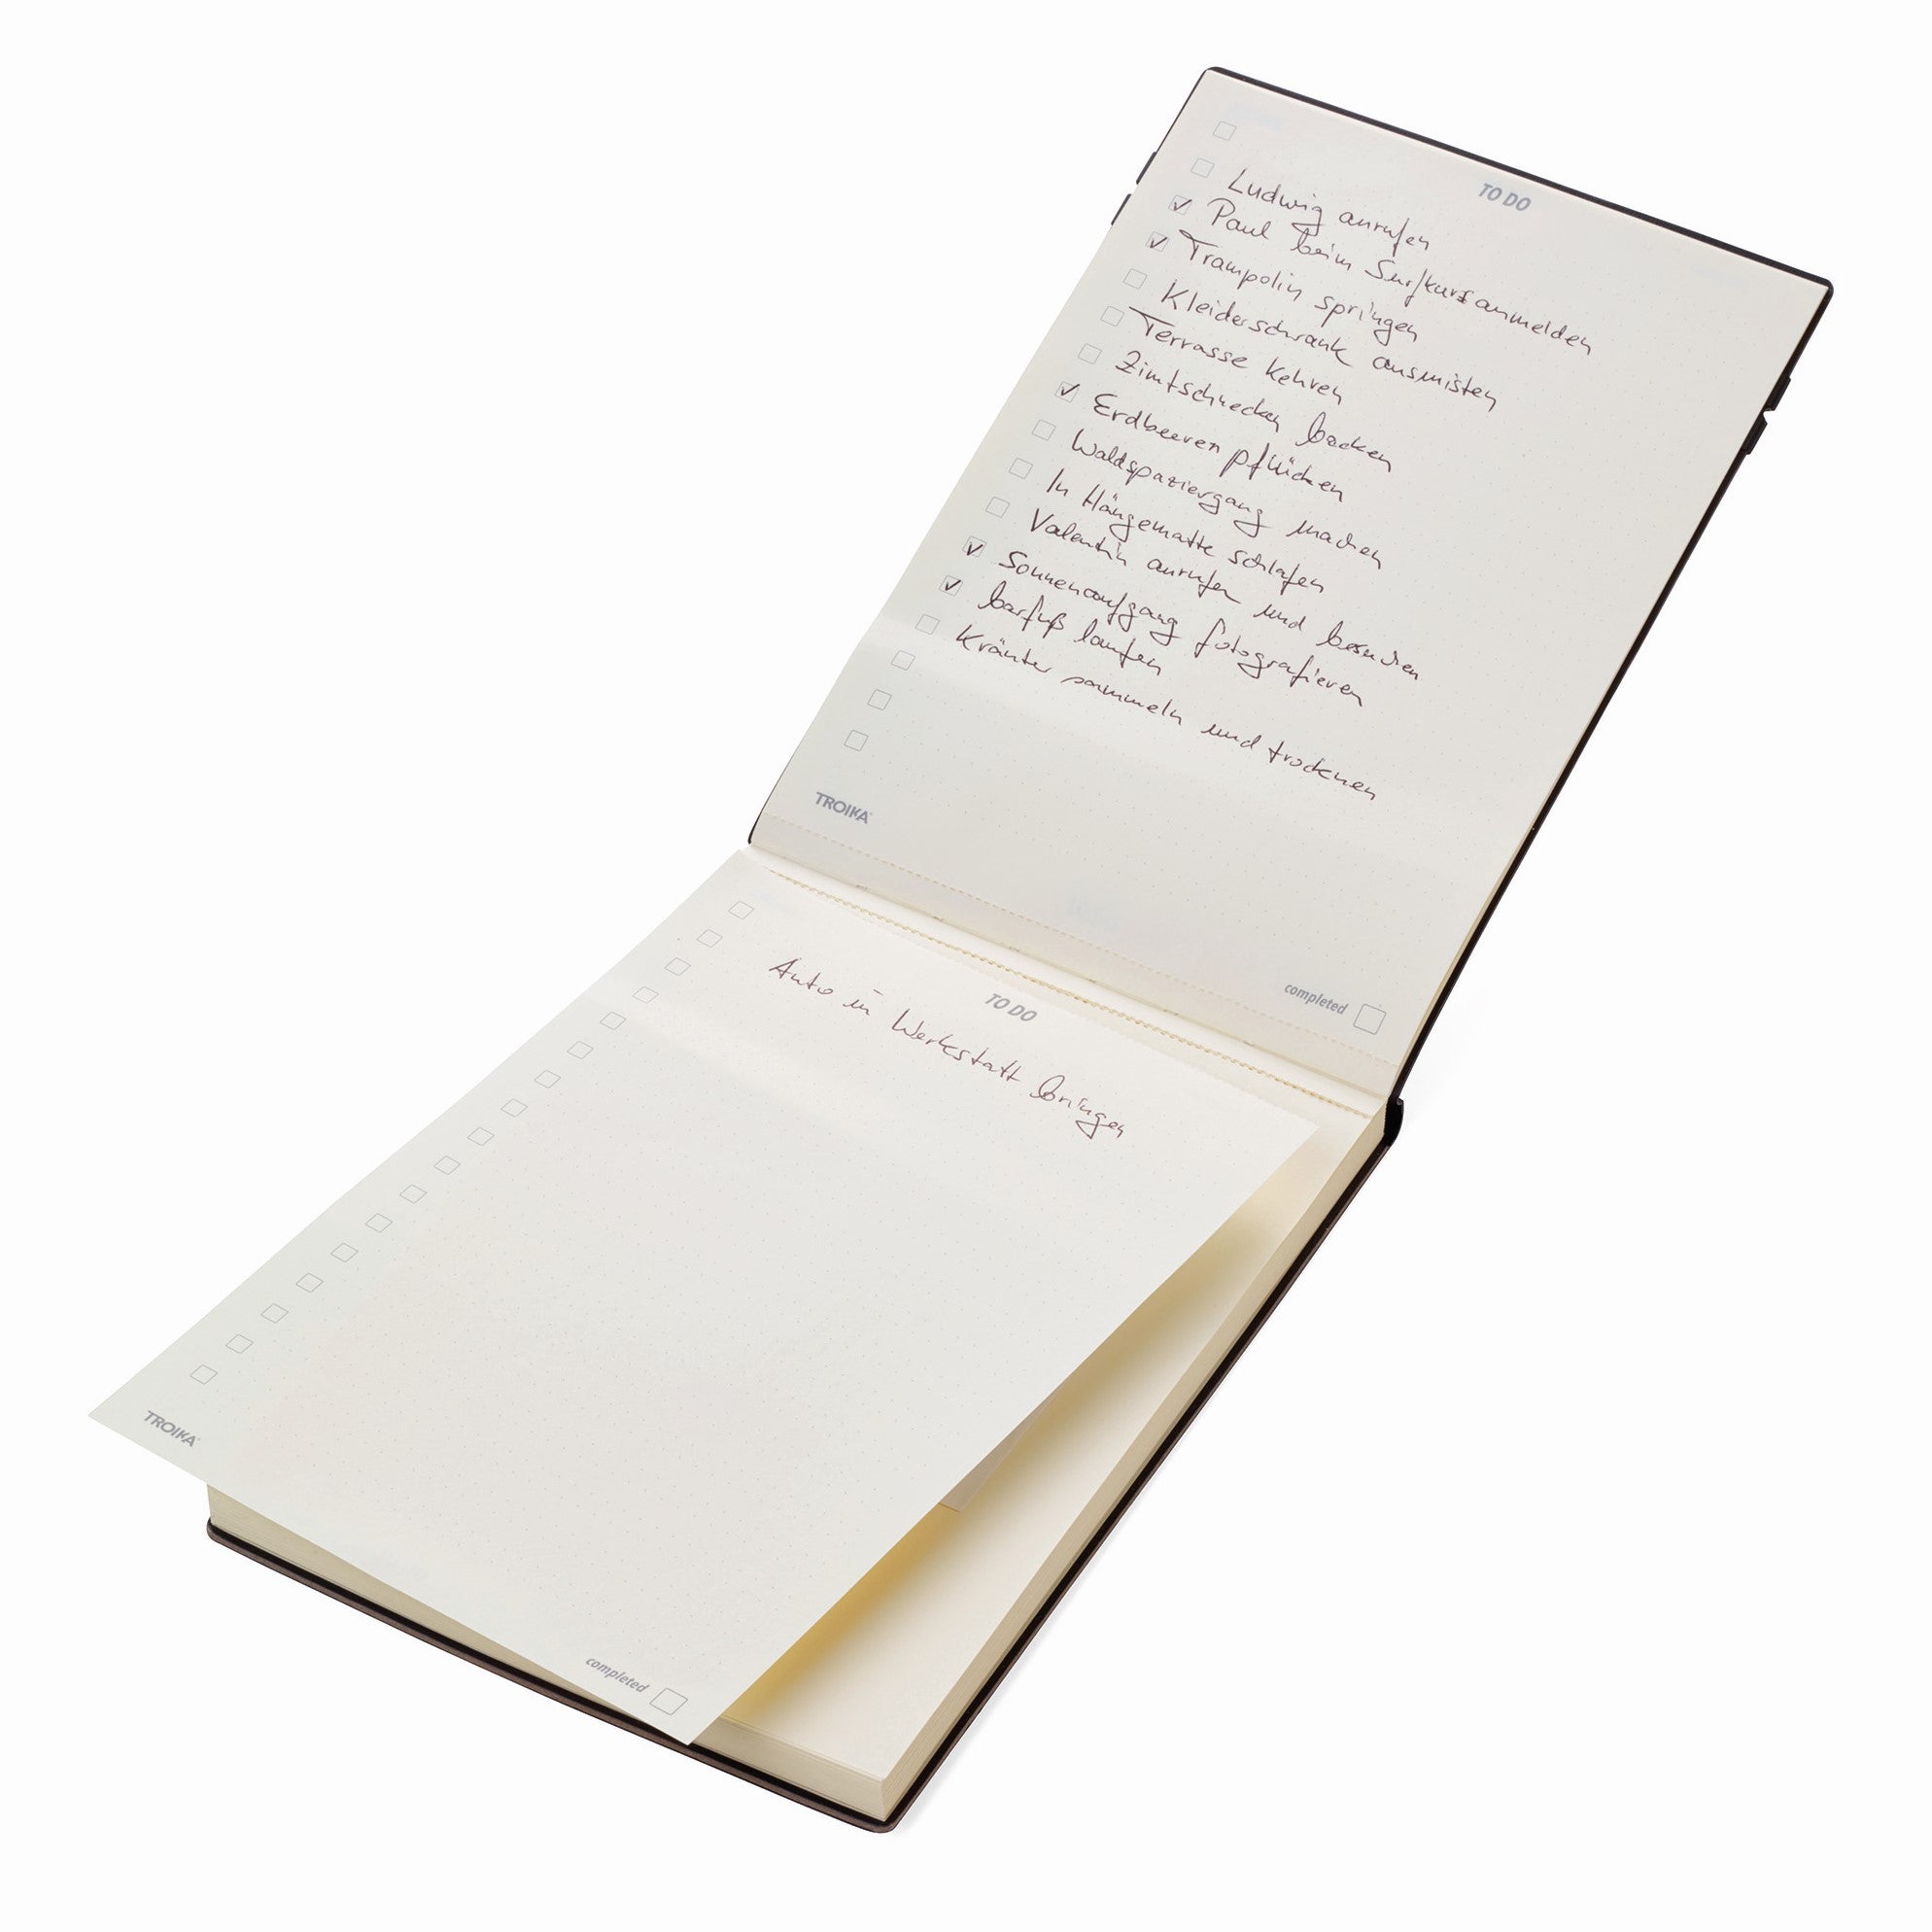 TO DO
Ludwig anrufen
Paul beim Surfkurs anmelden
Trampolin springen
Kleiderschrank ausmisten
Terrasse kehren
Zimtschnecken backen
Erdbeeren pflücken
Waldspaziergang machen
In Hängematte schlafen
Valentin anrufen und besuchen
Sonnenaufgang fotografieren
barfuß laufen
Kräuter sammeln und trocknen
TROIKA
completed
TO DO
Auto in Werkstatt bringen
TROIKA
completed